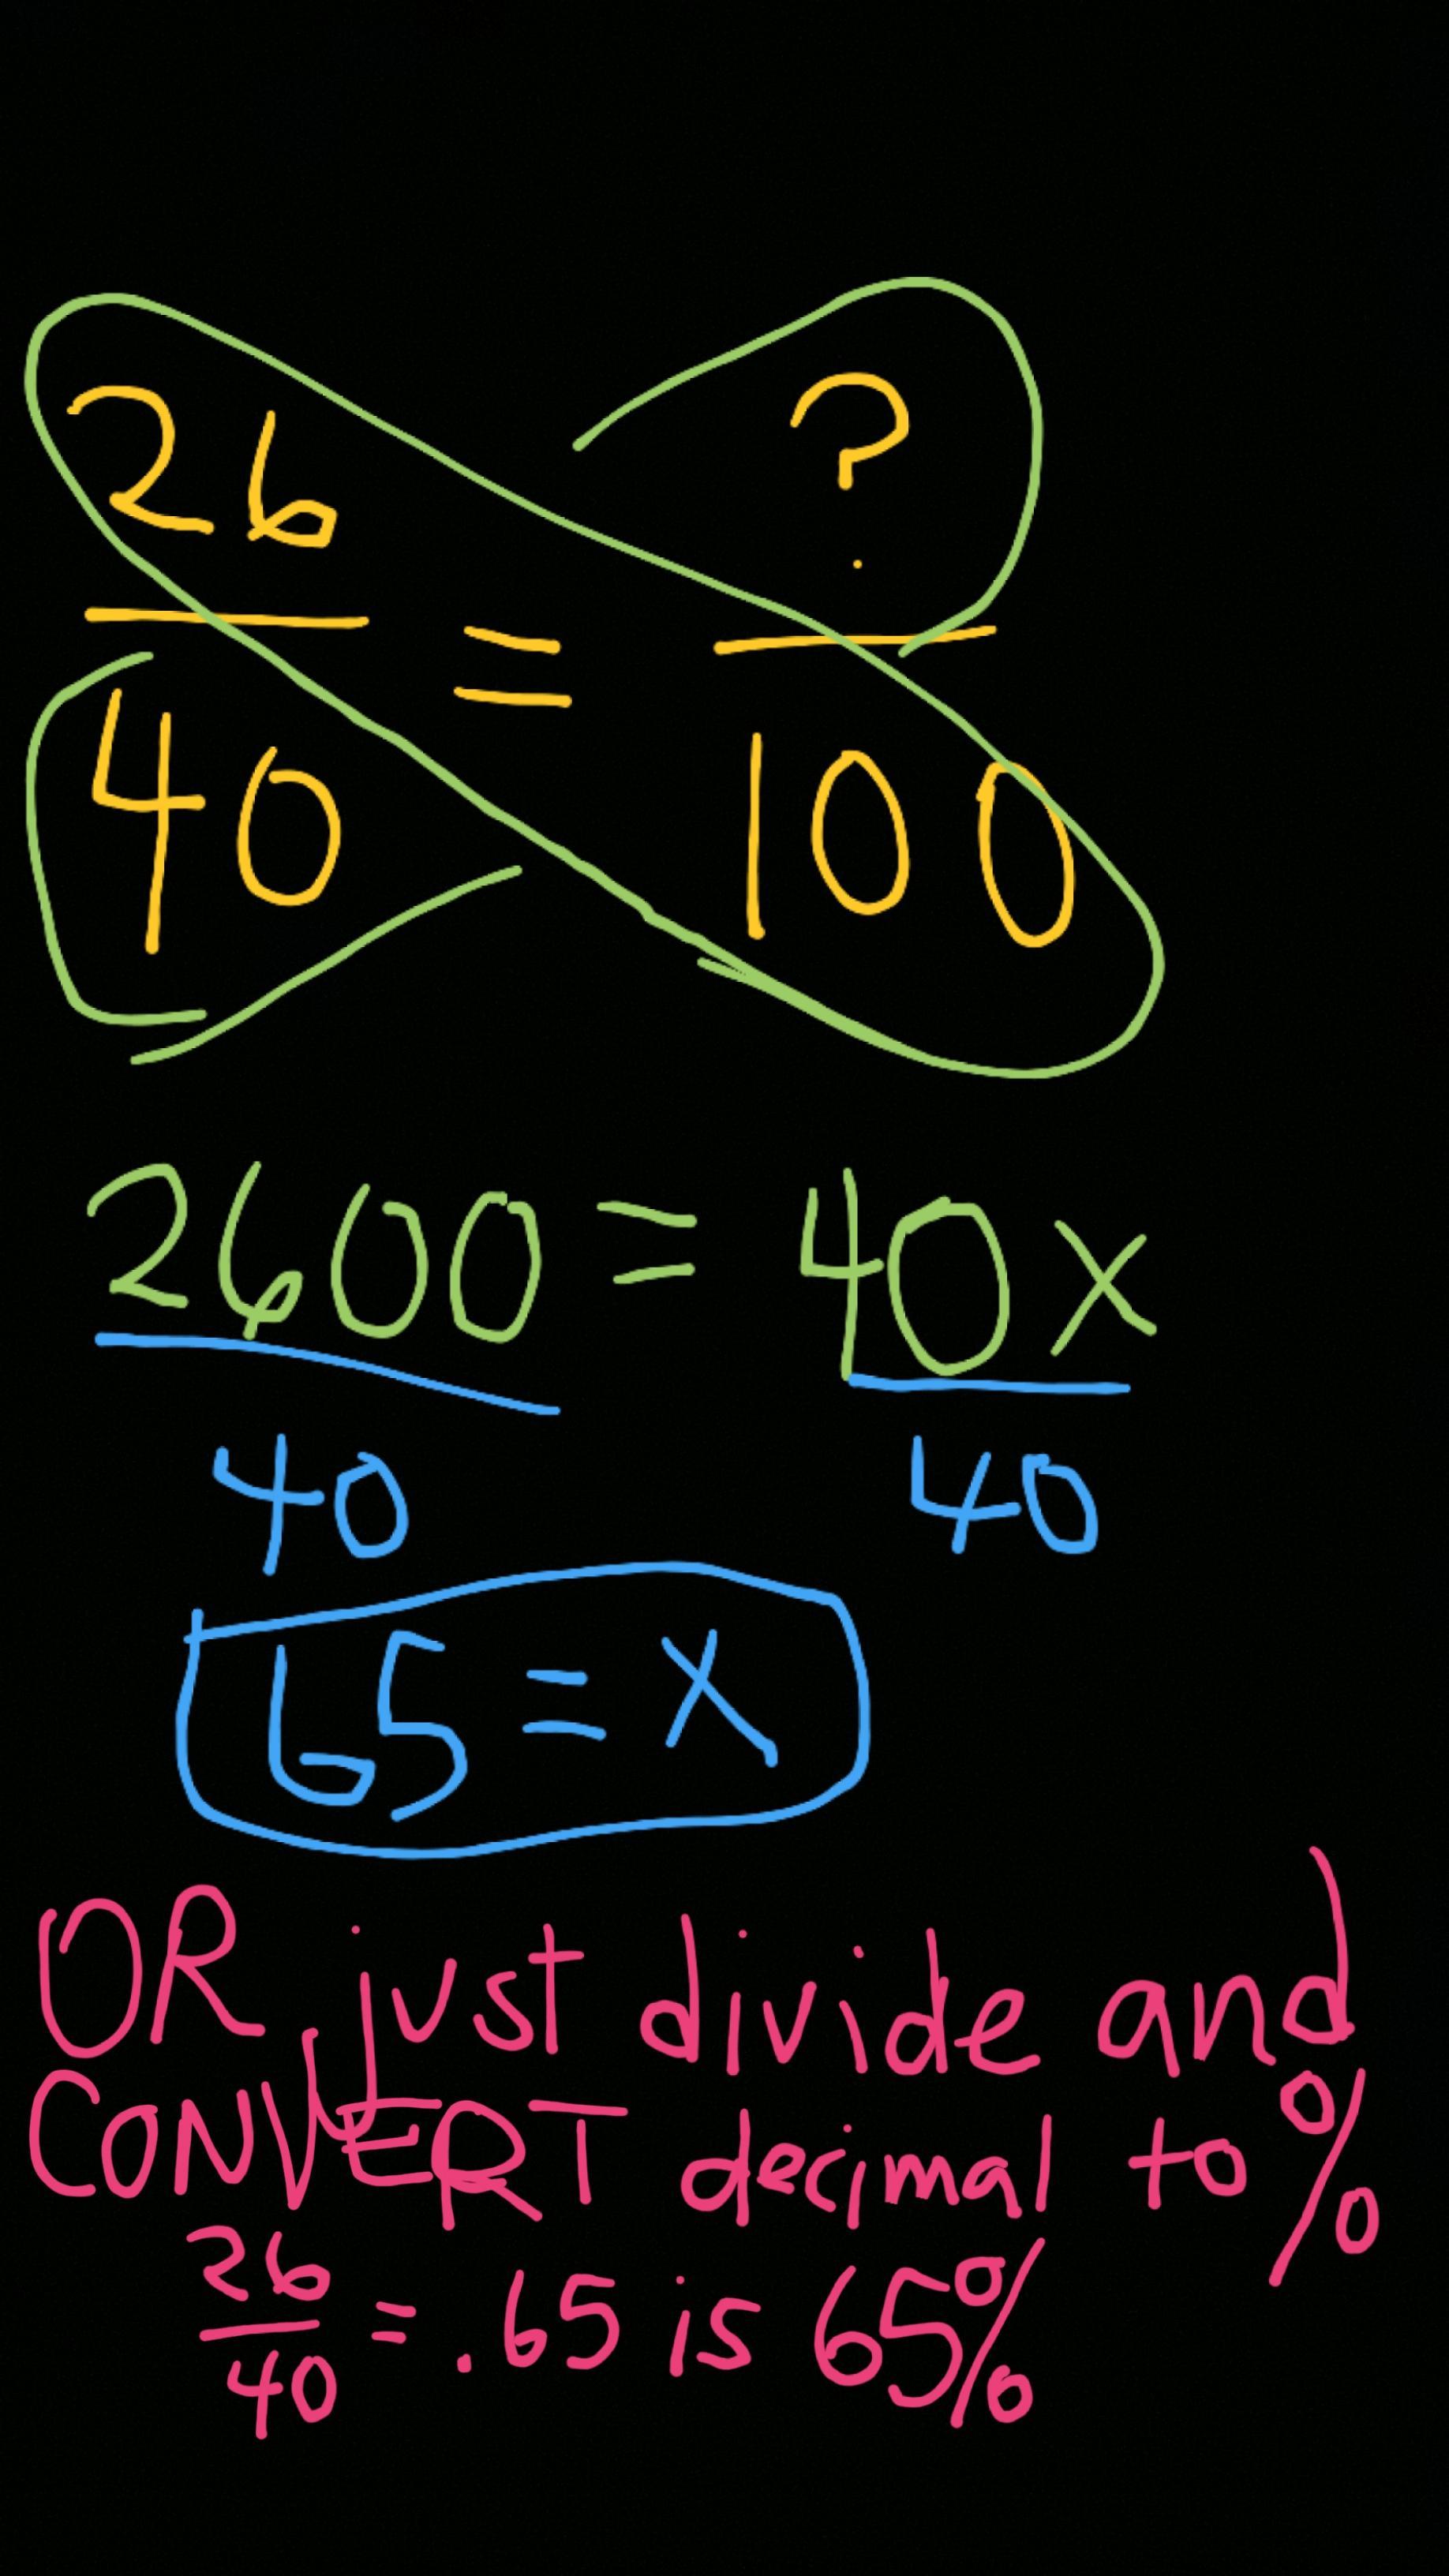 26 ?
— = —
40 100
2600 = 40x
40 40
65 = x
OR just divide and
CONVERT decimal to %
26
— = .65 is 65%
40